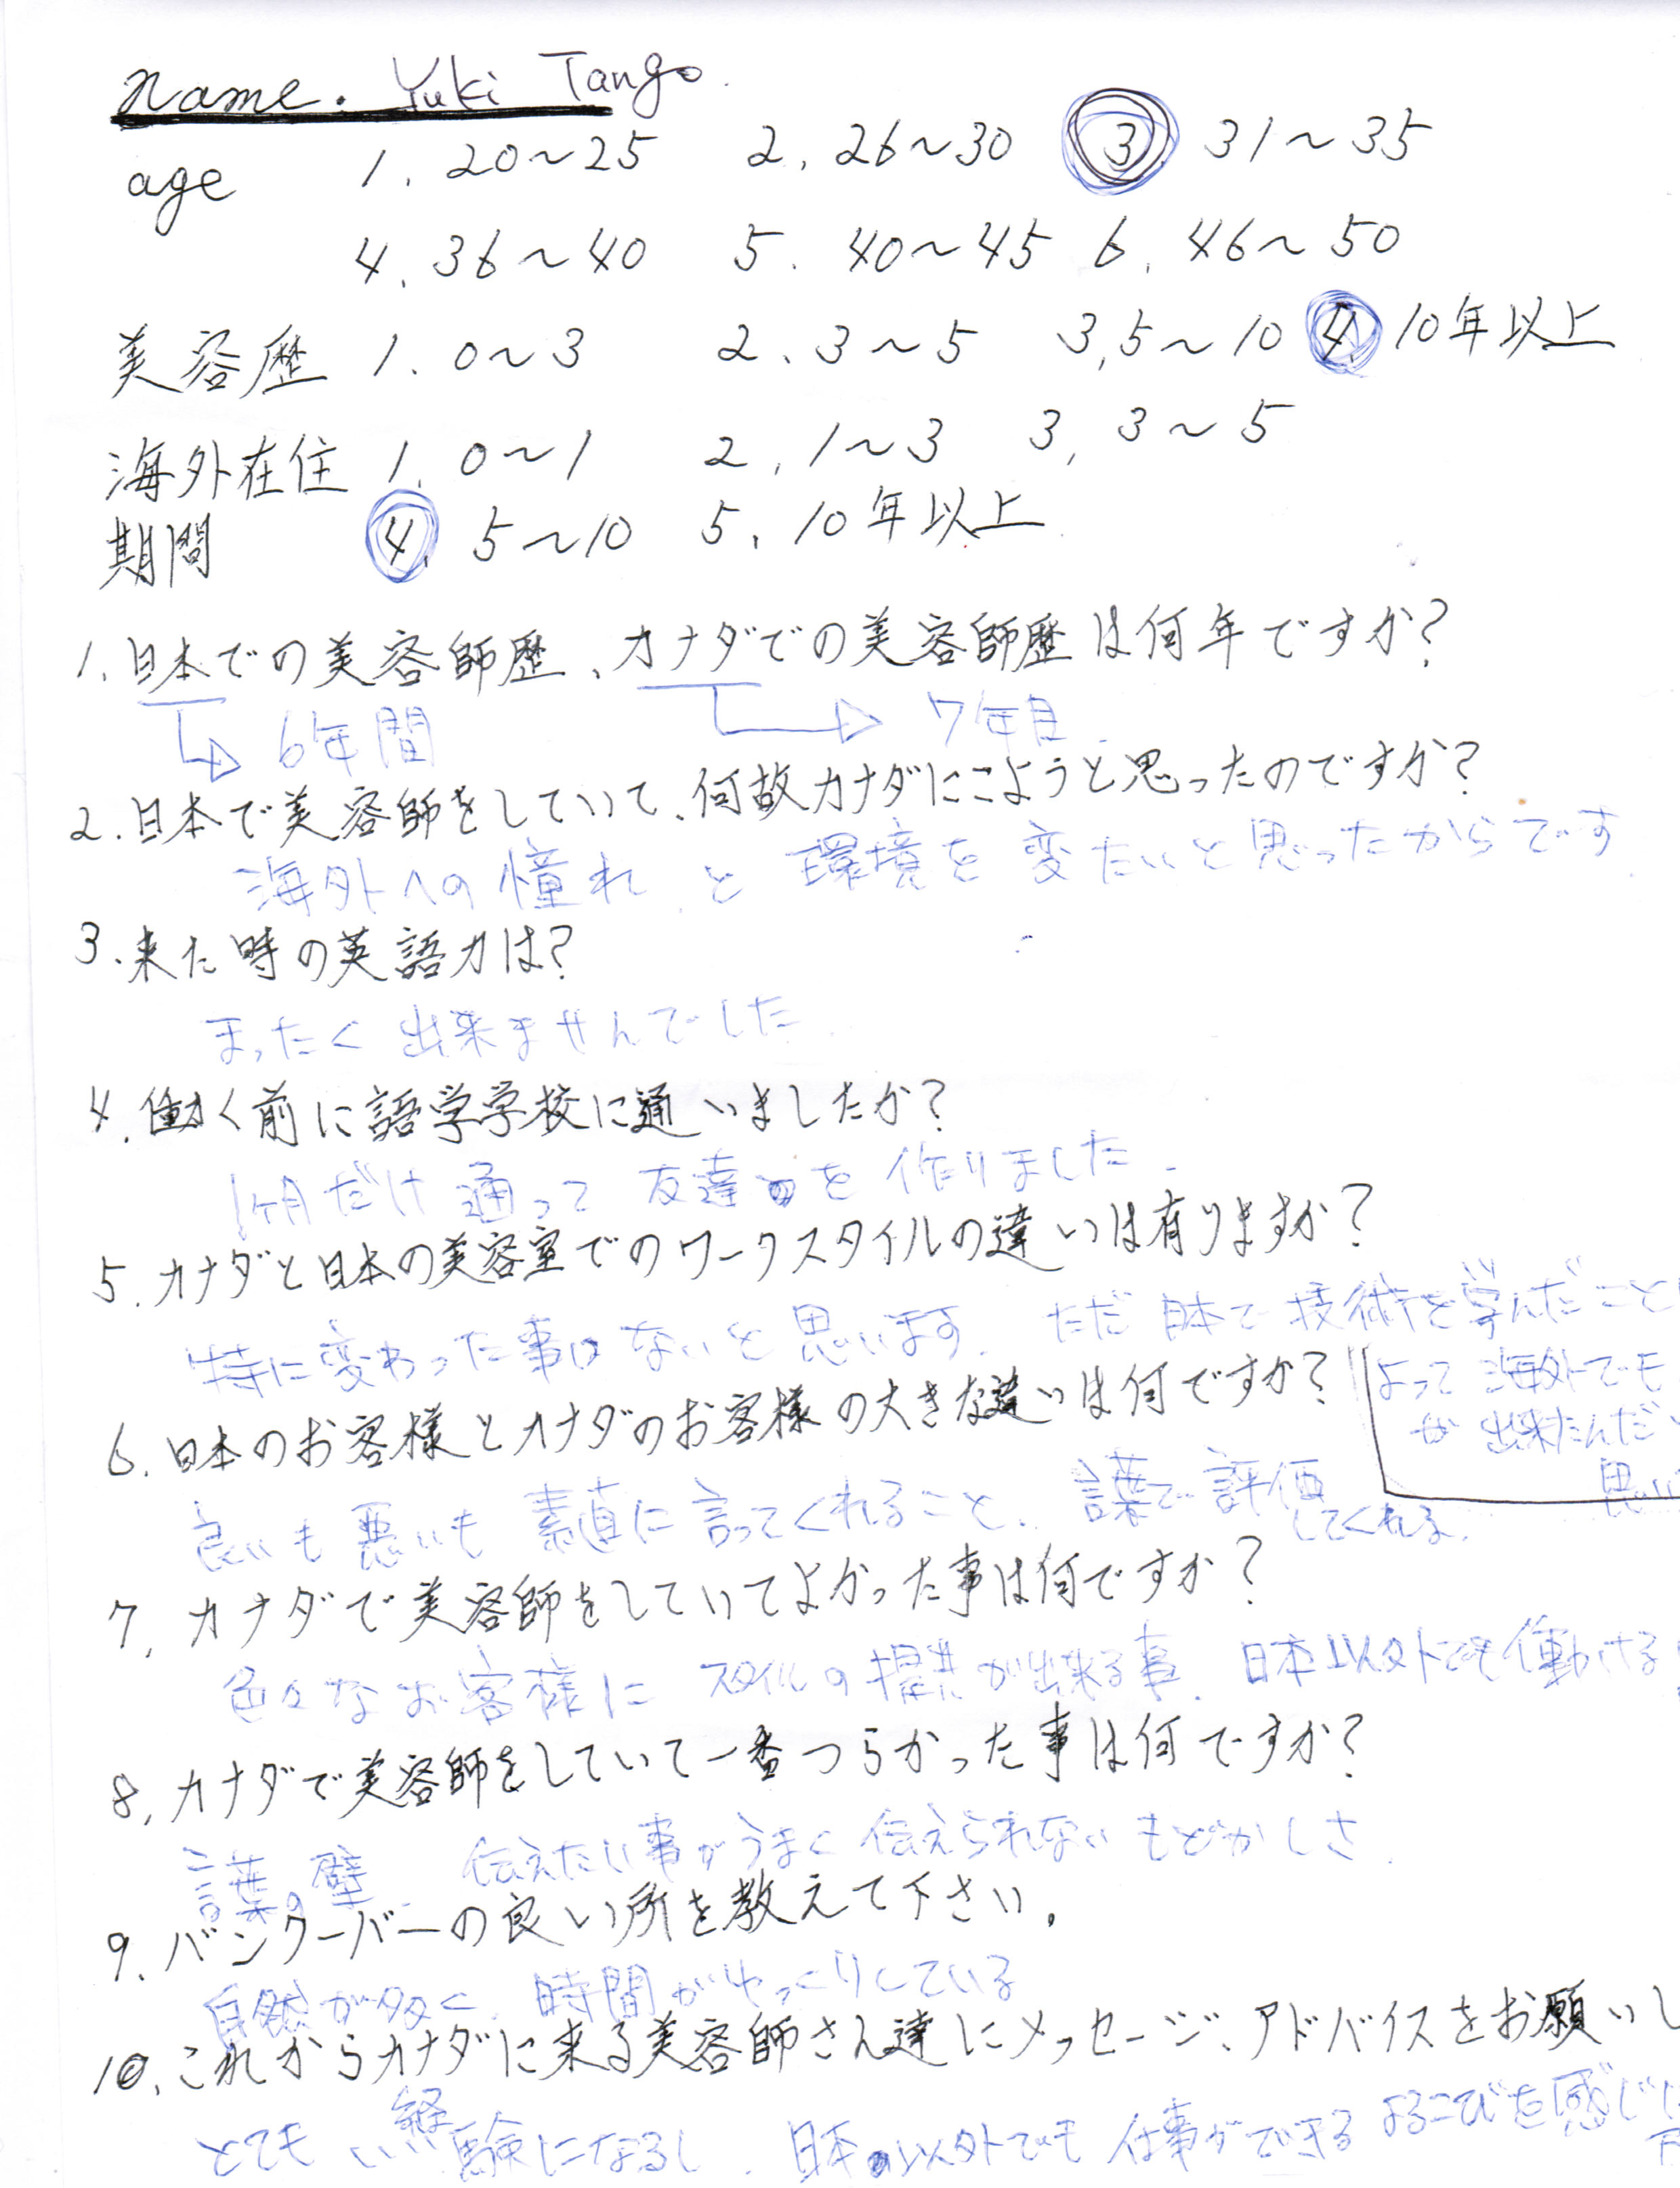 Name. Yuki Tango.
age 1. 20〜25 2. 26〜30 3 31〜35
4. 36〜40 5. 40〜45 6. 46〜50
美容歴 1. 0〜3 2. 3〜5 3, 5〜10 4. 10年以上
海外在住 1. 0〜1 2. 1〜3 3, 3〜5
期間 4. 5〜10 5. 10年以上
1. 日本での美容師歴、カナダでの美容師歴は何年ですか?
6年間 7年目.
2. 日本で美容師をしていて、何故カナダにこようと思ったのですか?
海外への憧れ と 環境を 変たいと思ったからです.
3. 来た時の英語力は?
まったく 出来ませんでした.
4. 働く前に語学学校に通いましたか?
1ヶ月だけ 通って 友達を 作りました.
5. カナダと日本の美容室でのワークスタイルの違いは有りますか?
特に変わった事はないと思います. ただ 日本で 技術を学んだこと
よって 海外でも
が 出来たんだ
思い
6. 日本のお客様とカナダのお客様の大きな違いは何ですか?
良いも 悪いも 素直に 言ってくれること. 言葉で 評価
してくれる.
7, カナダで美容師をしていてよかった事は何ですか?
色々なお客様に スタイルの提供が出来る事. 日本以外でも働ける
8, カナダで美容師をしていて一番つらかった事は何ですか?
言葉の壁. 伝えたい事がうまく伝えられない もどかしさ.
9. バンクーバーの良い所を教えて下さい。
自然が多く. 時間がゆっくりしている
10. これからカナダに来る美容師さん達にメッセージ、アドバイスをお願いし
とても いい経験になるし. 日本以外でも 仕事ができる よろこびを感じ
下